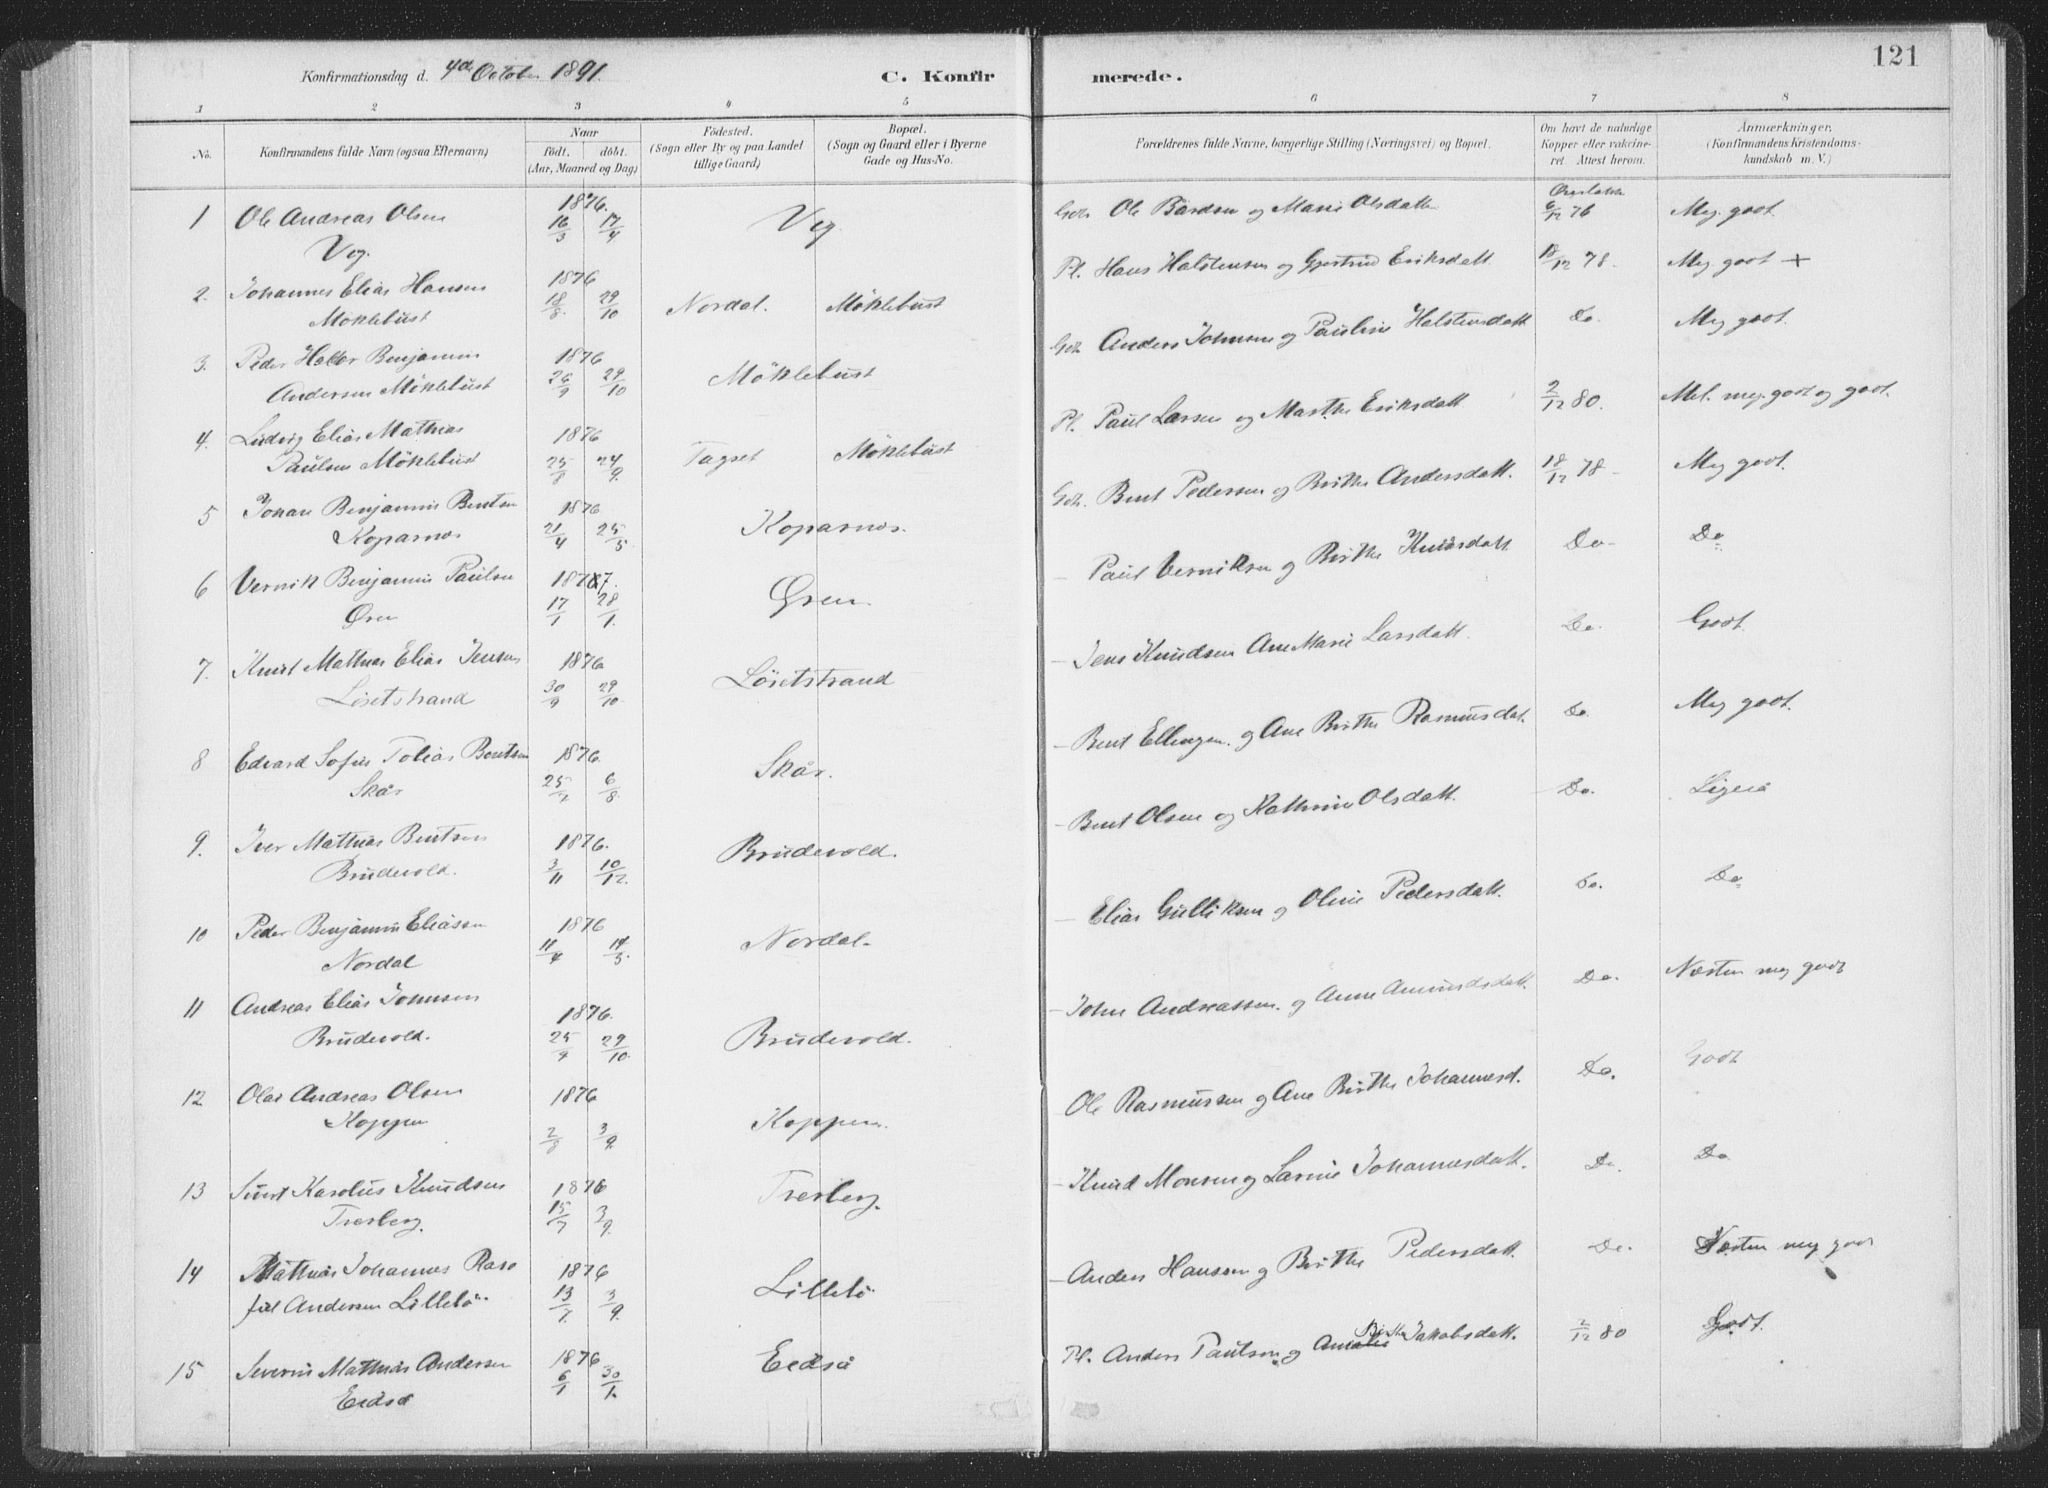 121
Konfirmationsdag d. 4de October 1891.
C. Konfirmerede.
1 2 3 4 5 6 7 8
No.
Konfirmandens fulde Navn (ogsaa Efternavn)
Naar
födt. döbt.
(Aar, Maaned og Dag)
Födested.
(Sogn eller By og paa Landet tillige Gaard)
Bopæl.
(Sogn og Gaard eller i Byerne Gade og Hus-No.
Forældrenes fulde Navne, borgerlige Stilling (Næringsvei) og Bopæl.
Om havt de naturlige Kopper eller vakcineret. Attest herom.
Anmærkninger.
(Konfirmandens Kristendomskundskab m. V.)
1 Ole Andreas Olsen 1876. 16/3 17/4 Veg Ole Bårdsen og Marie Olsdatt 6/12 76 Meg. godt
Veg.
2. Johannes Elias Hansen 1876 18/8 29/10 Nordal. Möklebust Pl. Hans Halstensen og Gjertrud Eriksdatt 18/12 78. Meg godt +
Möklebust
3. Peder Benjamin 1876 26/9 29/10 Möklebust Anders Johnsen og Pauline Halstensdatt Do. Meg godt.
Andersen Möklebust
4. Ludvig Elias Mathias 1876 25/8 24/9. Tagset Möklebust Pl. Paul Larsen og Marthe Eriksdatt 2/12 80. Mel. meg. godt og godt.
Paulsen Möklebust
5 Johan Benjamin Bentsen 1876 21/4 25/5. Koparnes. Bent Pedersen og Birthe Andersdatt. 18/12 78 - Meg godt.
Koparnes
6 Vernik Benjamin Paulsen 1877. 17/1 28/1. Øren. - Paul Verniksen og Birthe Knudsdatt Do- Do
Øren
7. Knut Mathias Elias Jensen 1876 30/9 29/10 Löset strand - Jens Knudsen Ane Marie Larsdatt. Do. Godt
Löset strand
8 Edvard Sofus Tobias Bentsen 1876. 6/8. Skår. - Bent Ellingsen. og Ane Birthe Rasmusdat. Do. Meg godt.
Skår
9. Iver Mathias Bentsen 1876. 3/11 10/12. Brudevold. - Bent Olsen og Kathrine Olsdatt. Do. Ligeså
Brudevold.
10 Peder Benjamin Eliasen 1876 11/4 14/5. Nordal. - Elias Gulliksen og Oline Pedersdatt. Do. Do
Nordal
11 Andreas Elias Johnsen 1876. 25/9 29/10. Brudevold. - John Andreassen. og Anne Amundsdatt. Do. Næsten meg godt
Brudevold.
12 Olai Andreas Olsen 1876 2/8 3/9. Koppen. Ole Rasmussen og Ane Birthe Johannesd. Do. Godt
Koppen
13 Sivert Karolus Knudsen 1876 15/7 3/9. Tresberg. - Knud Monsen og Larine Johannesdatt. Do. Do
Tresberg.
14 Mathias Johannes 1876 13/7. 3/9. Lillebö - Anders Hanssen og Birthe Pedersdatt. Do. Næsten meg godt
Andersen Lillebö
15 Severin Mathias Andersen 1876 6/1 30/1. Eedså Pl. Anders Paulsen og Birthe Jakobsdatt. 2/12 80 Godt.
Eedså